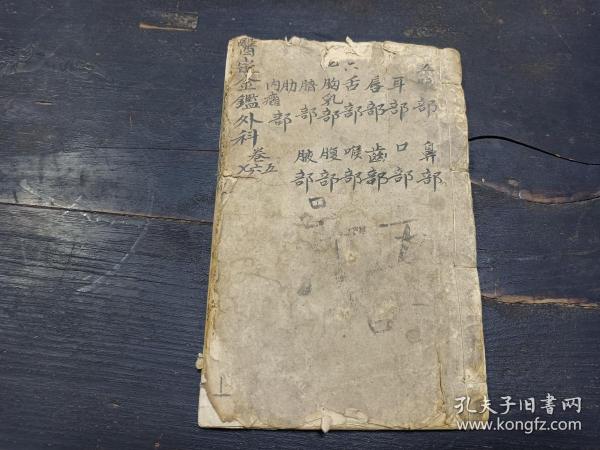 部 鼻部
耳部 口部
唇部 齒部
六 舌部 喉部
胸乳部 腹部
臍部 腋部
肋
内癰部
醫宗金鑑外科 卷五六
上
孔夫子旧书网
www.kongfz.com